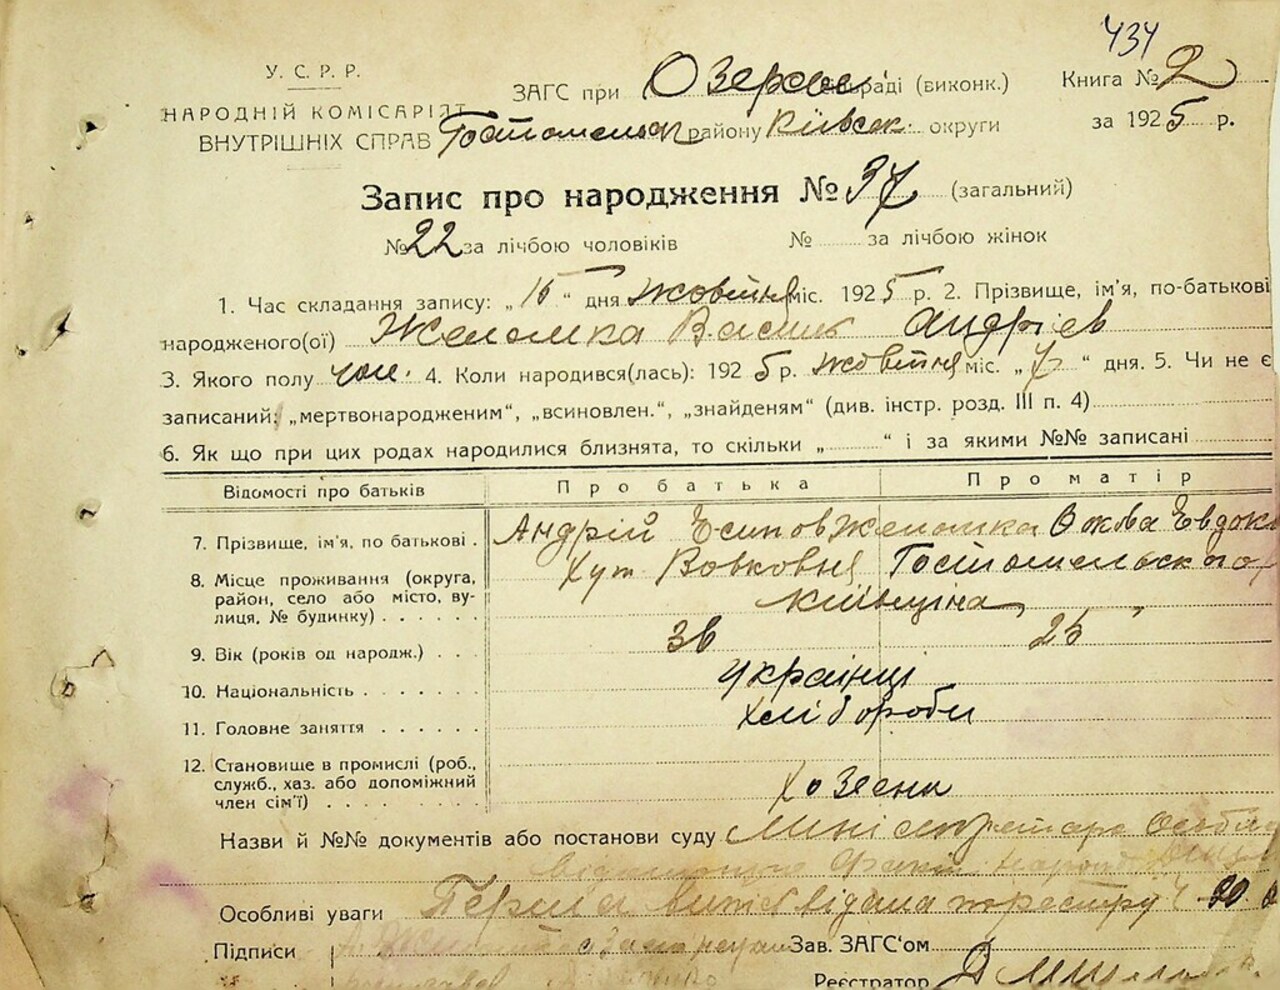 434
У. С. Р. Р.
НАРОДНІЙ КОМІСАРІЯТ
ВНУТРІШНІХ СПРАВ
ЗАГС при Озерськ. раді (виконк.)
Гостомельськ району Київськ. округи
Книга № 2
за 1925 р.
Запис про народження № 37 (загальний)
№ 22 за лічбою чоловіків № за лічбою жінок
1. Час складання запису: „ “ дня жовтня міс. 1925 р. 2. Прізвище, ім'я, по-батькові
народженого(ої) Желомка Василь Андріев
3. Якого полу чол. 4. Коли народився(лась): 1925 р. жовтня міс. „7“ дня. 5. Чи не є
записаний: „мертвонародженим“, „всиновлен.“, „знайденям“ (див. інстр. розд. III п. 4)
6. Як що при цих родах народилися близнята, то скільки „ “ і за якими №№ записані
Відомості про батьків Про батька Про матір
7. Прізвище, ім'я, по батькові . Андрій Есипов Желомка Евдок
8. Місце проживання (округа, Хут Вовковня Гостомельского
район, село або місто, ву-
лиця, № будинку) . . . . . . Київщина
9. Вік (років од народж.) . . . 25
10. Національність . . . . . . . українці
11. Головне заняття . . . . . . хлібороби
12. Становище в промислі (роб.,
служб., хаз. або допоміжний
член сім'ї) . . . . . . . . Хозяени
Назви й №№ документів або постанови суду
Особливі уваги Перша випис видана по рестру
Підписи Зав. ЗАГС'ом
Реєстратор